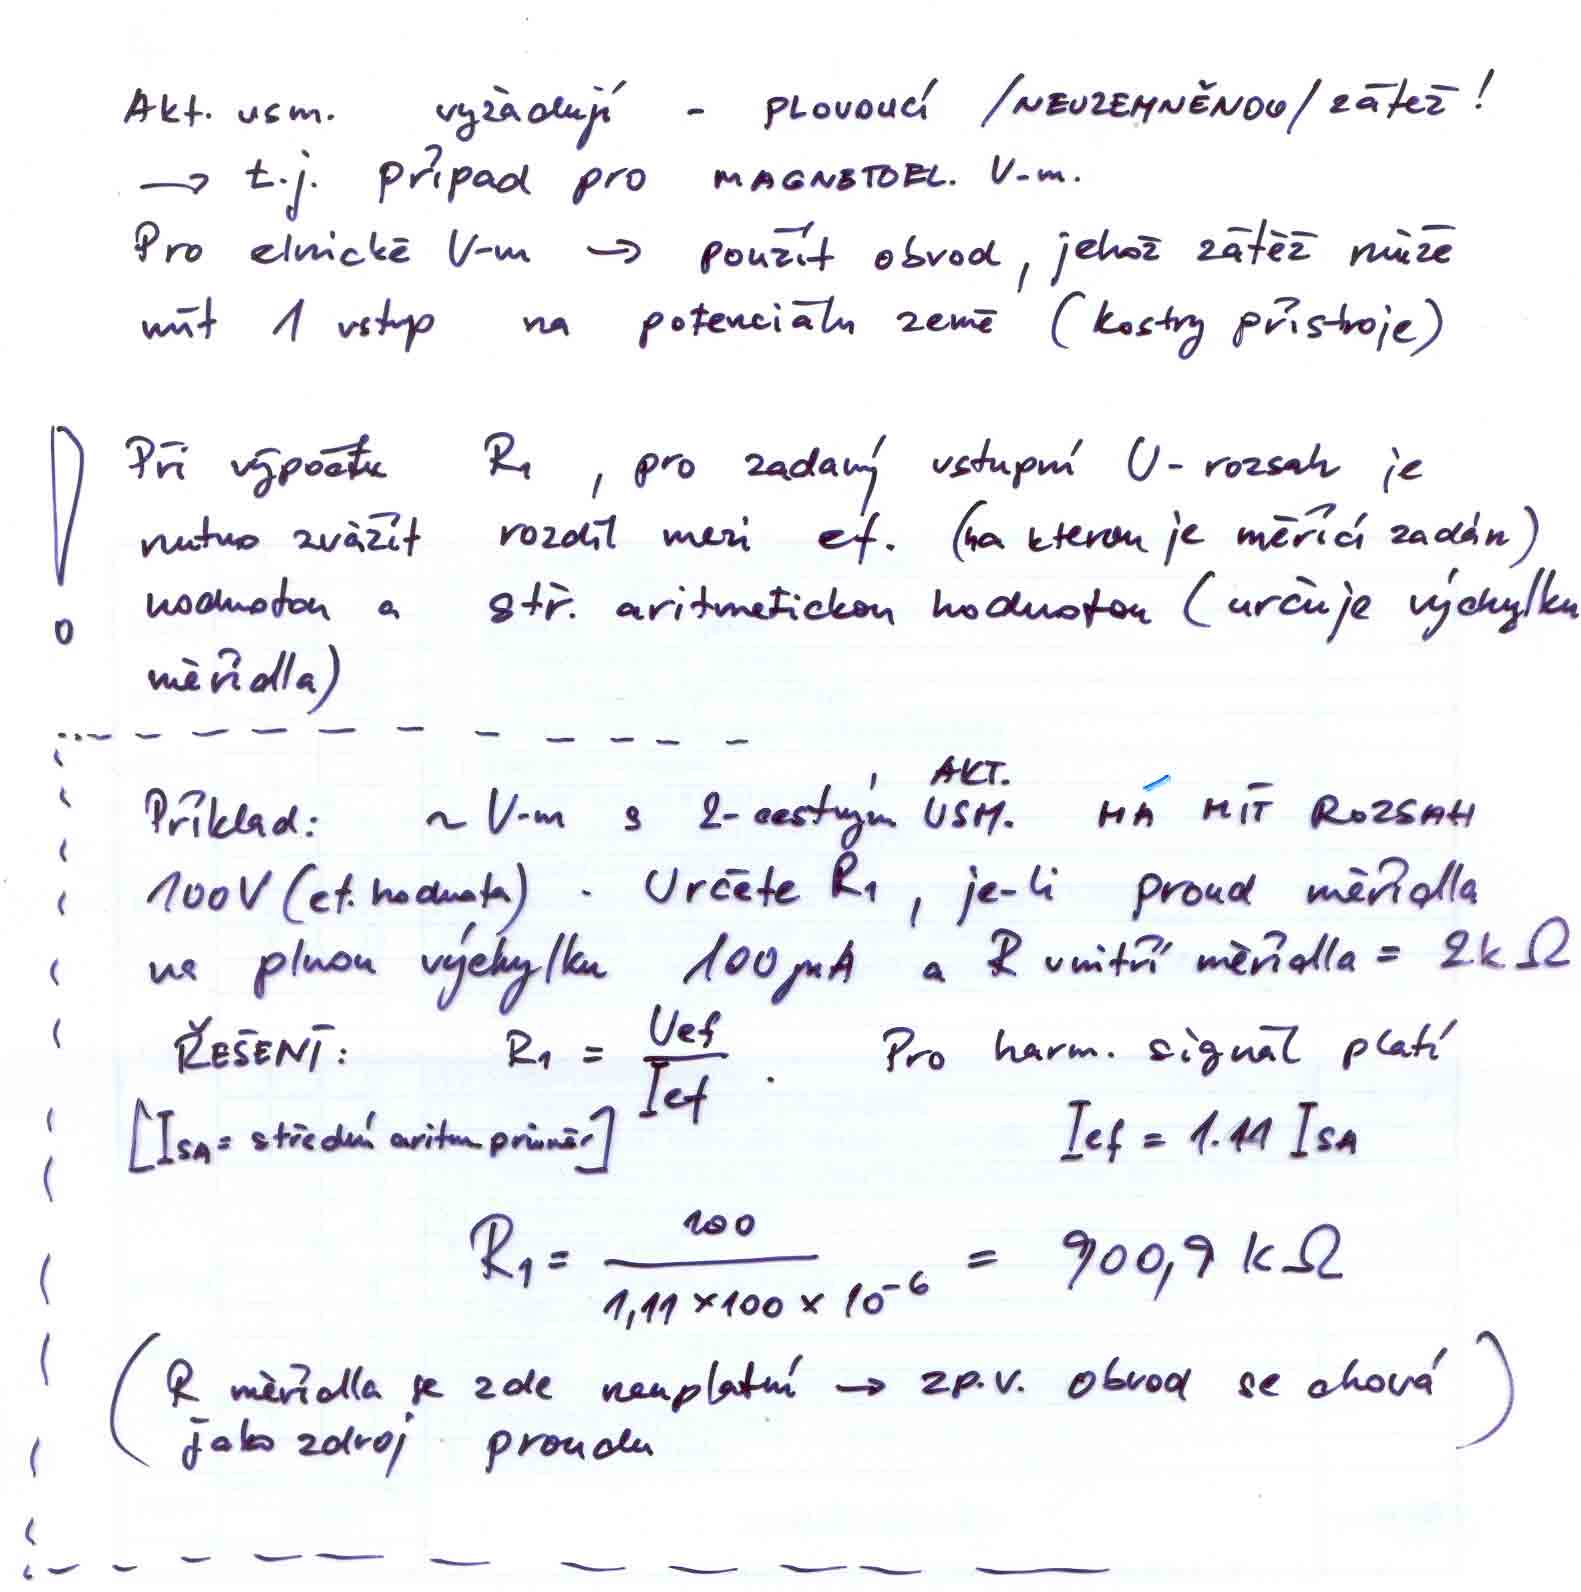 Akt. usm. vyžadují - PLOVOUCÍ /NEUZEMNĚNOU/ zátěž!
→ t.j. případ pro MAGNETOEL. V-m.
Pro elnické V-m → použít obvod, jehož zátěž může
mít 1 vstup na potenciálu země (kostry přístroje)
! Při výpočtu R1, pro zadaný vstupní U-rozsah je
nutno zvážit rozdíl mezi ef. (na kterou je měřící zadán)
hodnotou a stř. aritmetickou hodnotou (určuje výchylku
měřidla)
Příklad: ~ V-m s 2-cestným AKT. USM. MÁ MÍT ROZSAH
100V (ef. hodnota). Určete R1, je-li proud měřidla
na plnou výchylku 100μA a R vnitří měřidla = 2kΩ
ŘEŠENÍ: R1 = Uef / Ief. Pro harm. signál platí
[ISA = střední aritm průměr] Ief = 1.11 ISA
R1 = 100 / 1,11 × 100 × 10^-6 = 900,9 kΩ
(R měřidla se zde neuplatní → zp.v. obvod se chová
jako zdroj proudu)